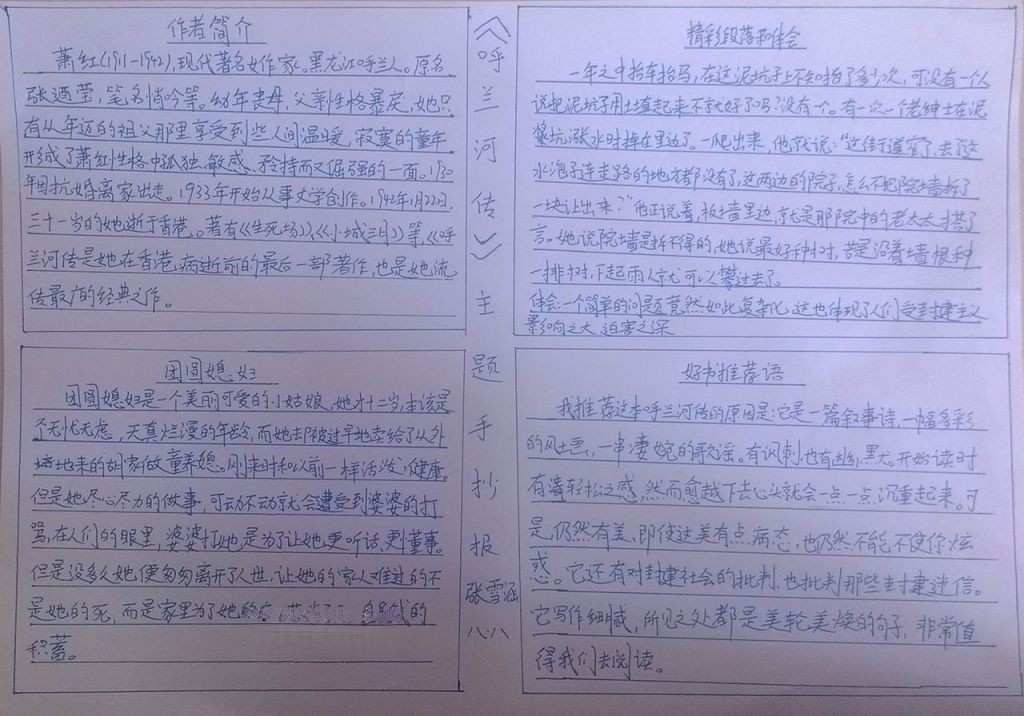 作者简介
萧红(1911-1942),现代著名女作家。黑龙江呼兰人。原名
张迺莹,笔名悄吟等。幼年丧母,父亲性格暴戾,她只
有从年迈的祖父那里享受到些人间温暖,寂寞的童年
形成了萧红性格中孤独、敏感、矜持而又倔强的一面。1930
年因抗婚离家出走。1933年开始从事文学创作。1942年1月22日,
三十一岁的她逝于香港。著有《生死场》,《小城三月》等,《呼
兰河传是她在香港病逝前的最后一部著作,也是她流
传最广的经典之作。
《呼兰河传》主题手抄报
张雪涵
八八
精彩段落和体会
一年之中抬车抬马,在这泥坑子上不知抬了多少次,可没有一个人
说把泥坑子用土填起来不就好了吗?没有一个。有一次一个老绅士在泥
坑涨水时掉在里边了。一爬出来,他就说:“这街道窄了,去了这
水泡子连走路的地方都没有了,这两边的院子,怎么不把院墙拆了
一块让出来?”他正说着,板墙里边,就是那院中的老太太搭了
言。她说院墙是拆不得的,她说最好种树,若是沿着墙根种
一排树,下起雨人就可以攀过去了。
体会:一个简单的问题竟然如此复杂化,这也体现了人们受封建主义
影响之大,迫害之深
团圆媳妇
团圆媳妇是一个美丽可爱的小姑娘,她才十二岁,本该是
个无忧无虑,天真烂漫的年龄,而她却被过早地卖给了从外
地来的胡家做童养媳。刚来时和以前一样活泼、健康。
但是她尽心尽力的做事,可动不动就会遭受到婆婆的打
骂,在人们的眼里,婆婆打她,是为了让她更听话,更懂事。
但是没多久她便匆匆离开了人世,让她的家人难过的不
是她的死,而是家里为了她的
积蓄。
好书推荐语
我推荐这本呼兰河传的原因是:它是一篇叙事诗,一幅多彩
的风土画,一串凄婉的歌谣。有讽刺,也有幽默。开始读时
有清轻松之感,然而愈越下去心头就会一点一点沉重起来。可
是,仍然有美,即使这美有点病态,也仍然不能不使你炫
惑。它还有对封建社会的批判,也批判那些封建迷信。
它写作细腻,所见之处都是美轮美焕的句子,非常值
得我们去阅读。